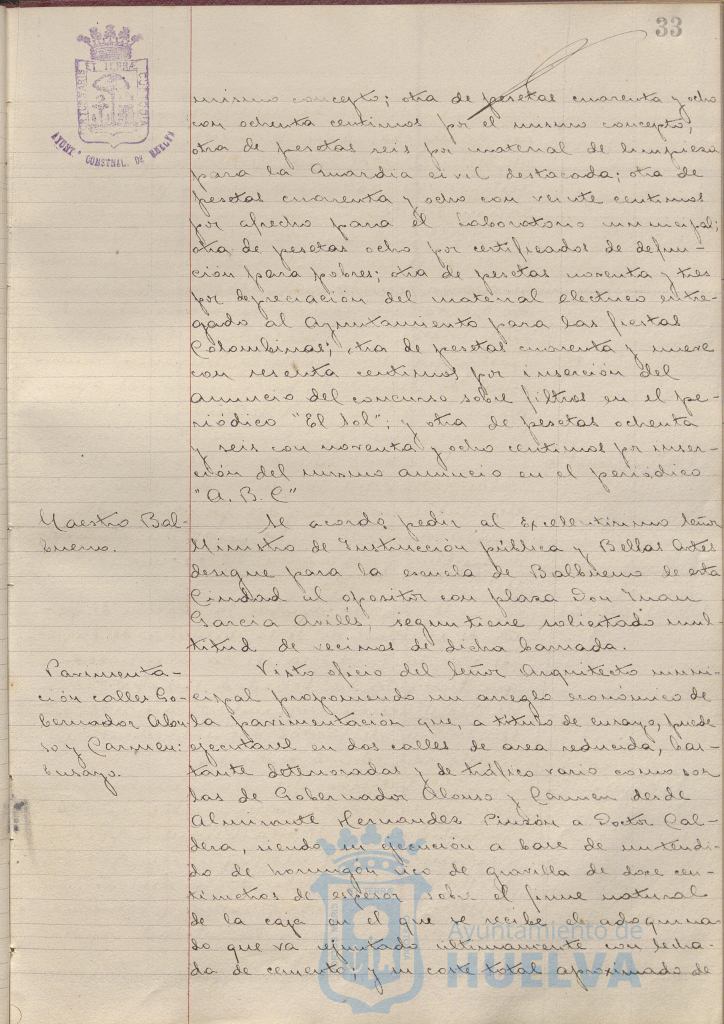 33
PORTUS MARIS ET TERRÆ CUSTODIA
AYUNT. CONSTNAL. DE HUELVA
mismo concepto; otra de pesetas cuarenta y ocho
con ochenta centimos por el mismo concepto;
otra de pesetas seis por material de limpieza
para la Guardia civil destacada; otra de
pesetas cuarenta y ocho con veinte centimos
por afrecho para el Laboratorio municipal;
otra de pesetas ocho por certificados de defun-
ción para pobres; otra de pesetas noventa y tres
por depreciación del material electrico entre-
gado al Ayuntamiento para las fiestas
Colombinas; otra de pesetas cuarenta y nueve
con sesenta centimos por inserción del
anuncio del concurso sobre filtros en el pe-
riódico "El Sol"; y otra de pesetas ochenta
y seis con noventa y ocho centimos por inser-
ción del mismo anuncio en el periódico
"A. B. C"
Maestro Bal-
bueno.
Se acordó pedir al Excelentisimo Señor
Ministro de Instrucción pública y Bellas Artes
designe para la escuela de Balbueno de esta
Ciudad al opositor con plaza Don Juan
García Avilés, segun tiene solicitado mul-
titud de vecinos de dicha barriada.
Pavimenta-
ción calles Go-
bernador Alon-
so y Carmen:
Ensayo.
Visto oficio del Señor Arquitecto muni-
cipal proponiendo un arreglo económico de
la pavimentación que, a titulo de ensayo, puede
ejecutarse en dos calles de area reducida, bas-
tante deterioradas y de tráfico vario como son
las de Gobernador Alonso y Carmen desde
Almirante Hernandez Pinzón a Doctor Cal-
dera, siendo su ejecución a base de un tendi-
do de hormigón rico de gravilla de doce cen-
timetros de espesor sobre el firme natural
de la caja en el que se recibe el adoquina-
do que va rejuntado ultimamente con lecha-
da de cemento; y su coste total aproximado de
Ayuntamiento de
HUELVA